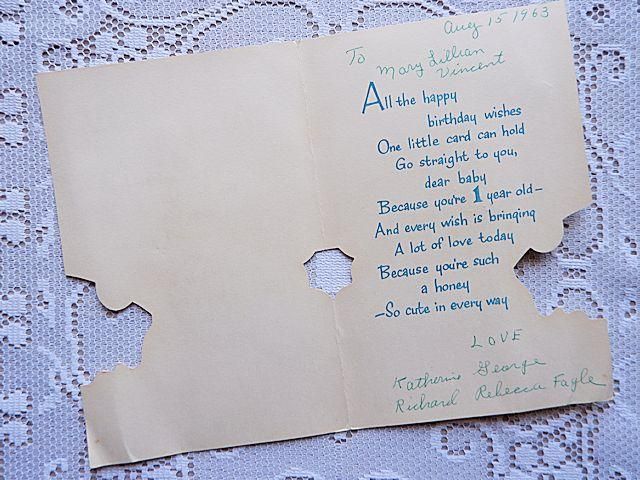 Aug 15 1963
To
Mary Lillian
Vincent
All the happy
birthday wishes
One little card can hold
Go straight to you,
dear baby
Because you're 1 year old—
And every wish is bringing
A lot of love today
Because you're such
a honey
—So cute in every way
LOVE
Katherine George
Richard Rebecca Fagle